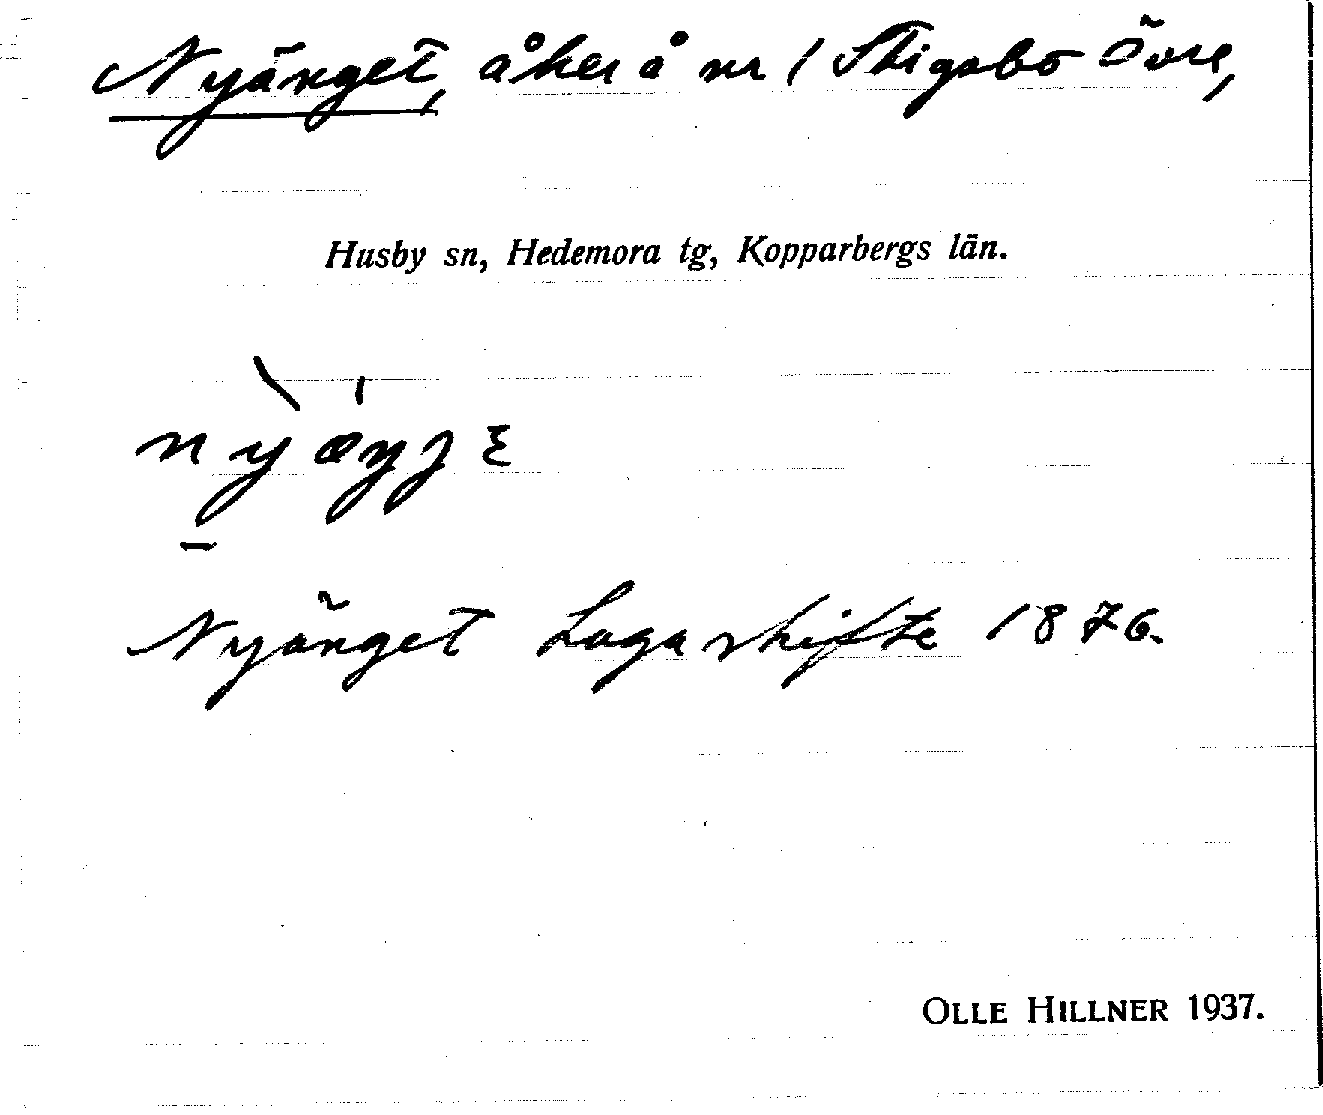 Nyänget, åker å nr 1 Stigsbo Övre,
Husby sn, Hedemora tg, Kopparbergs län.
nyæŋjε
Nyänget Laga skifte 1876.
OLLE HILLNER 1937.